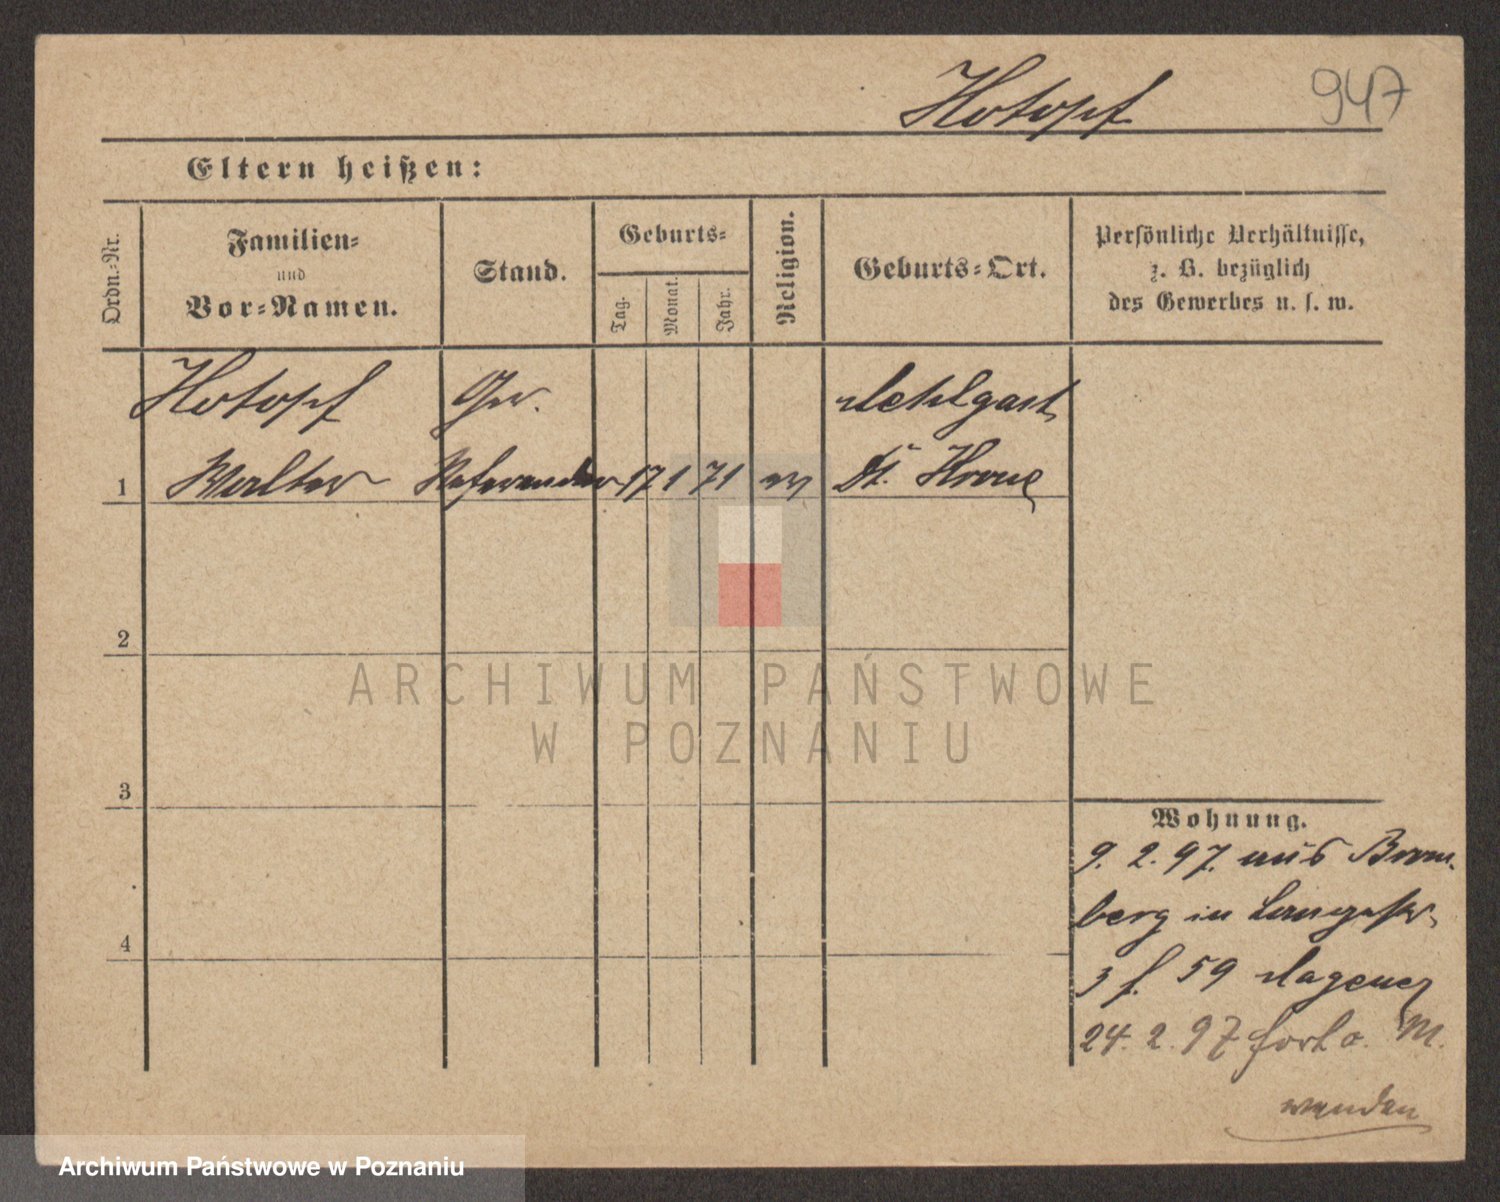 Hotopf 947
Eltern heißen:
Ordn.-Nr. Familien- und Vor-Namen. Stand. Geburts- Tag. Monat. Jahr. Religion. Geburts-Ort. Persönliche Verhältnisse, z. B. bezüglich des Gewerbes u. s. w.
Hotopf Ger.
1 Walter Referendar 17 1 71 ev Dt. Krone
2
3
4
Wohnung.
9. 2. 97. aus Brom-
berg in Langestr.
3 f. 59
24. 2. 97 fort o. M.
wenden
ARCHIWUM PAŃSTWOWE
W POZNANIU
Archiwum Państwowe w Poznaniu